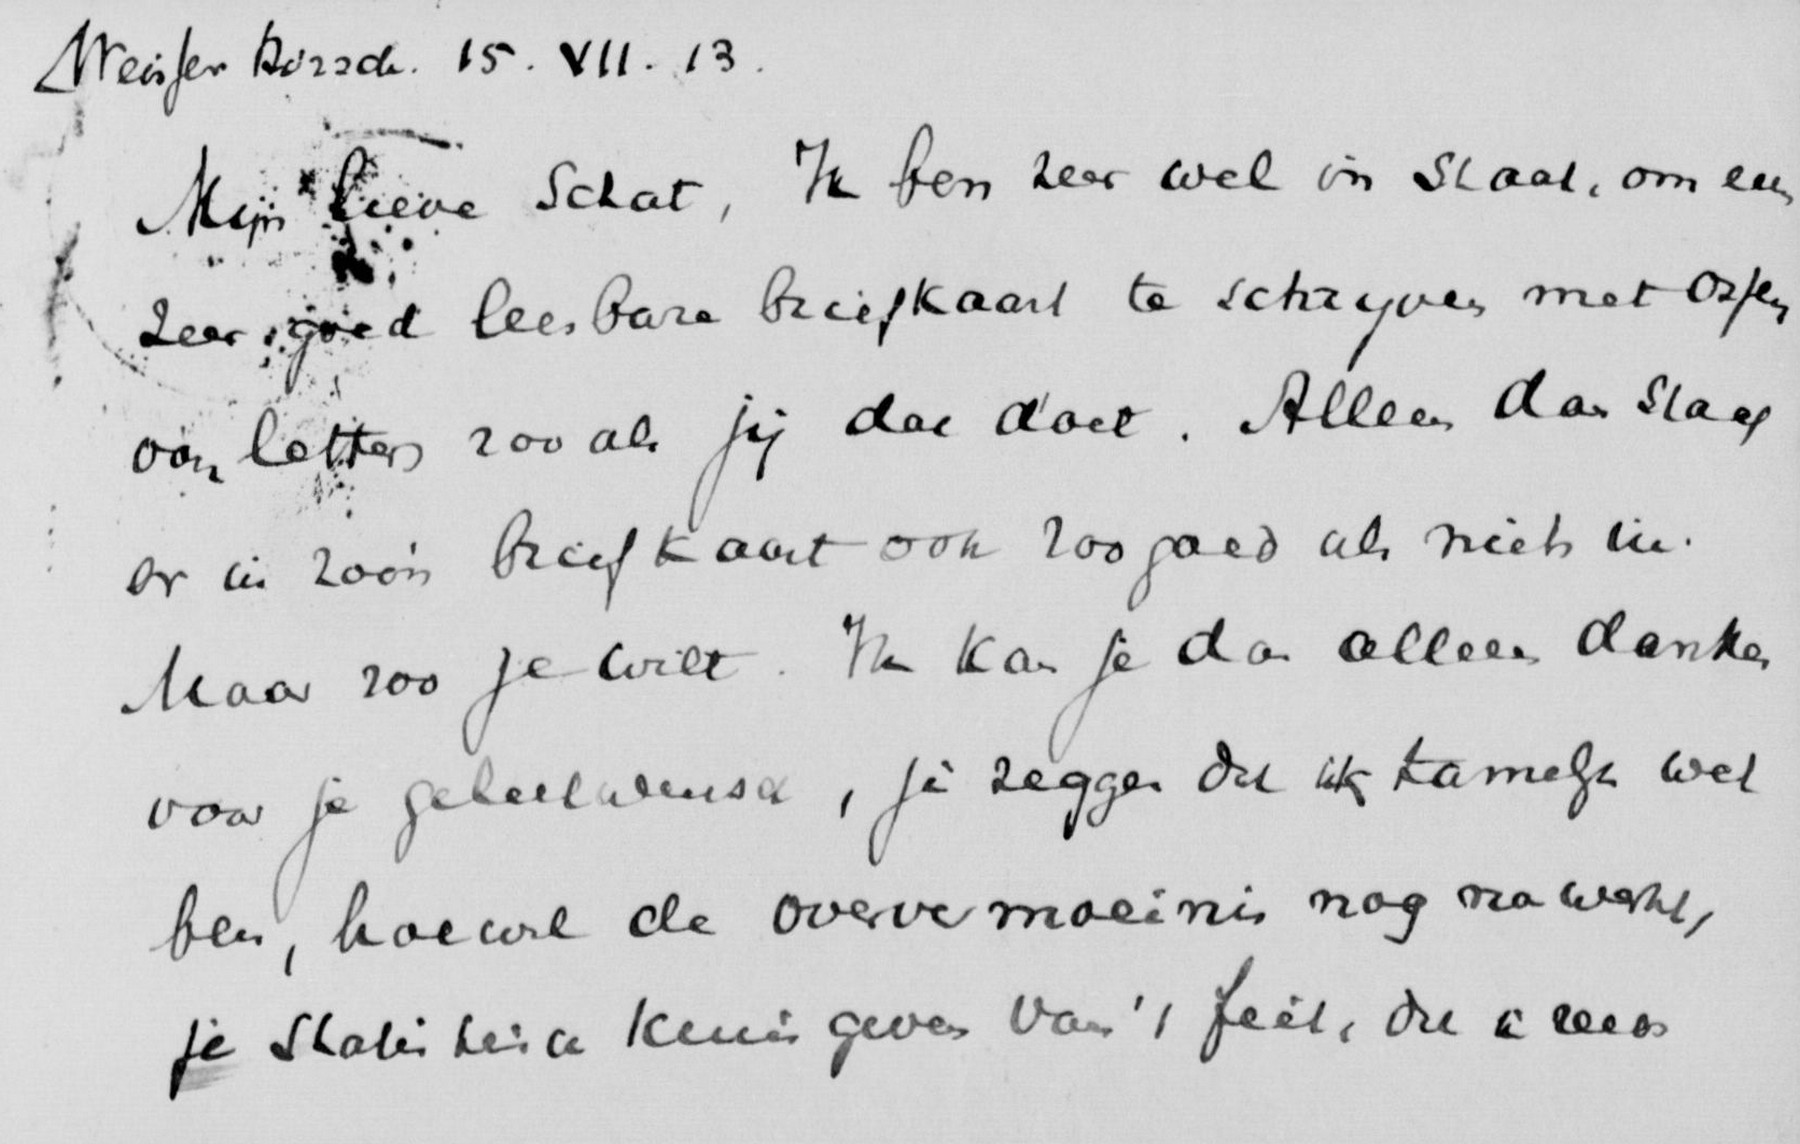 Weisser Hirsch. 15. VII. 13.
Mijn lieve Schat, Ik ben zeer wel in staat, om een
zeer goed leesbare briefkaart te schryven met
van letters zooals jij dat doet. Alleen dan staat
er in zoo'n briefkaart ook zoo goed als niets in.
Maar zoo je wilt. Ik kan je dan alleen danken
voor je geluk wensch, je zeggen dat ik tamelijk wel
ben, hoewel de oververmoeinis nog nawerkt,
je statistisch kennis geven van 't feit, dat ik